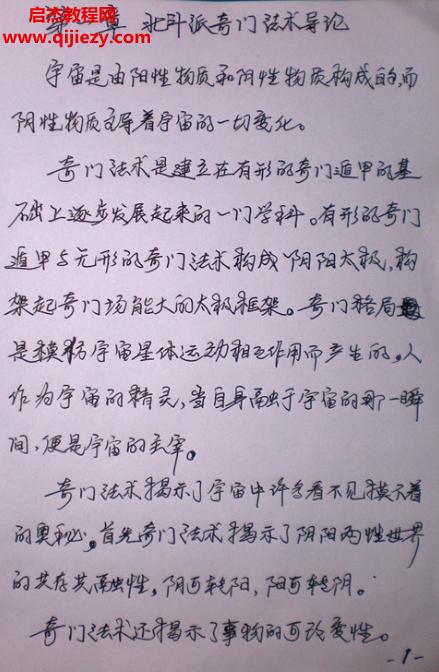 启杰教程网
www.qijiezy.com
第 章 北斗派奇门法术导论
宇宙是由阳性物质和阴性物质构成的,而
阴性物质主导着宇宙的一切变化。
奇门法术是建立在有形的奇门遁甲的基
础上逐步发展起来的一门学科。有形的奇门
遁甲与无形的奇门法术构成阴阳太极,构
架起奇门场能大的太极框架。奇门格局
是模仿宇宙星体运动相互作用而产生的。人
作为宇宙的精灵,当自身融于宇宙的那一瞬
间,便是宇宙的主宰。
奇门法术揭示了宇宙中许多看不见摸不着
的奥秘。首先奇门法术揭示了阴阳两性世界
的共存共融性,阴可转阳,阳可转阴。
奇门法术还揭示了事物的可 变性。
-1-